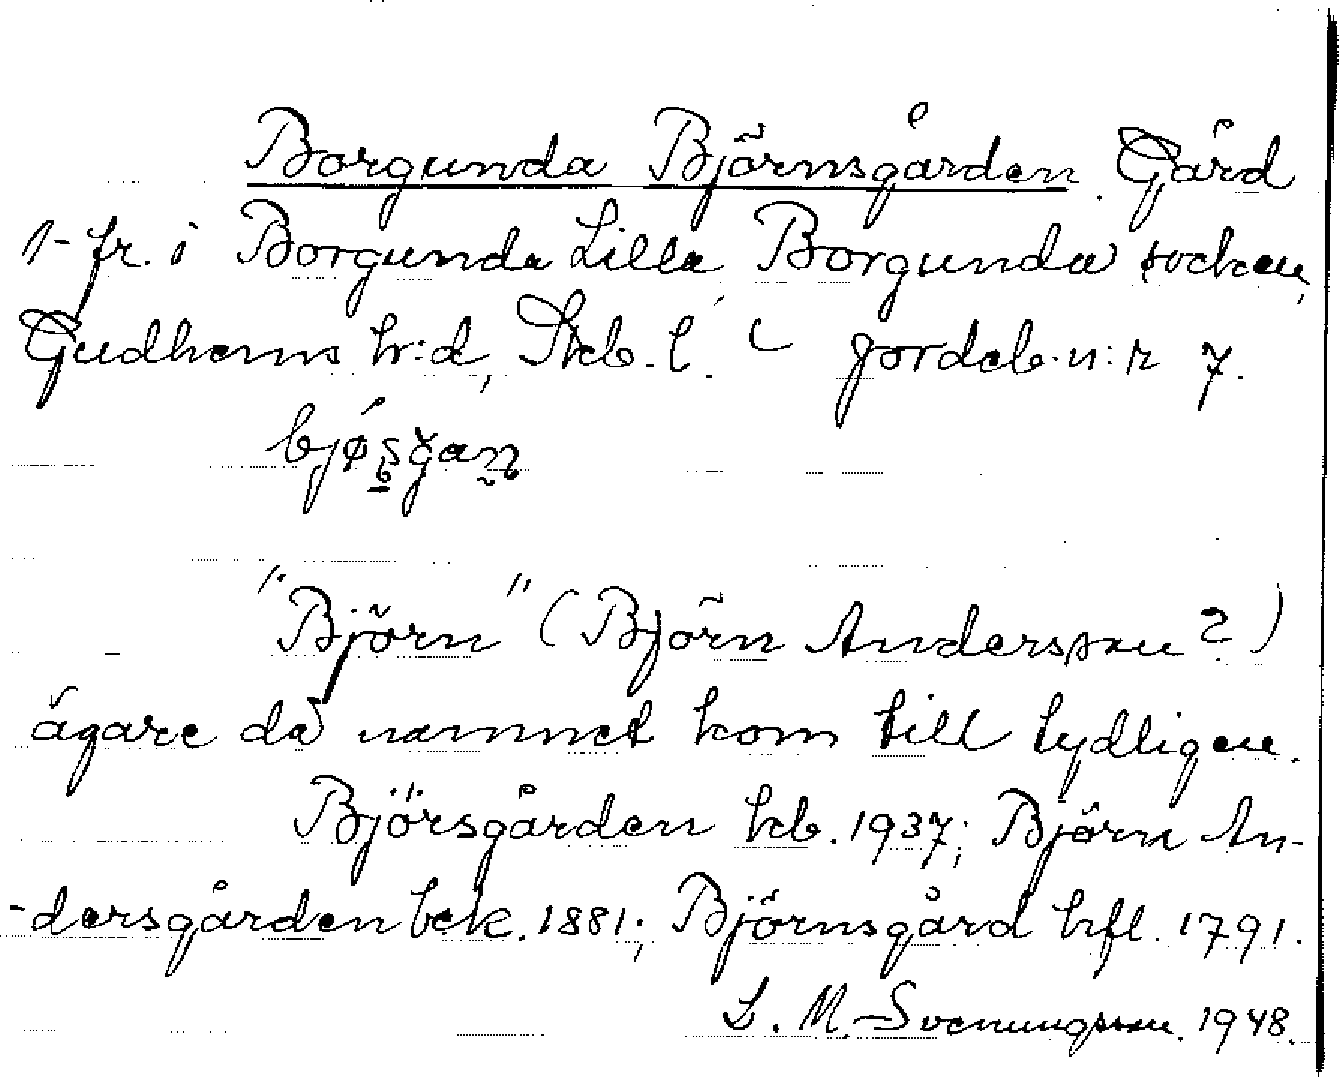 Borgunda Björnsgården. Gård
1 fr. i Borgunda Lilla Borgunda socken,
Gudhems hr:d, Skb. l. Jordeb. n:r 7.
"Björn" (Björn Andersson?)
ägare då namnet kom till tydligen.
Björsgården hcb. 1937; Björn An-
-dersgården bek. 1881; Björnsgård hfl. 1791.
L. M. Svenungsson. 1948.